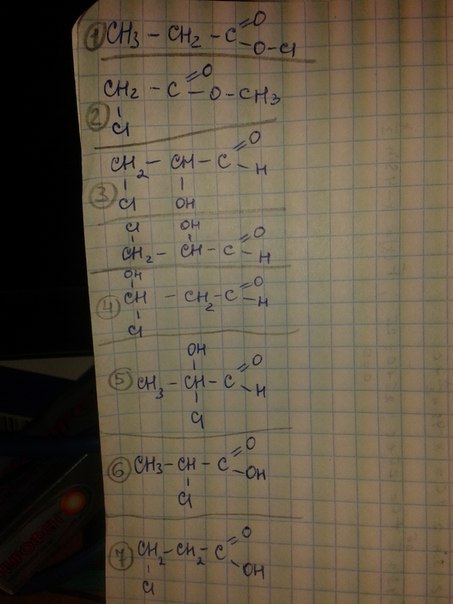 ① CH₃ – CH₂ – C =O
O–Cl
② CH₂ – C =O – O – CH₃
Cl
③ CH₂ – CH – C =O – H
Cl OH
Cl OH
CH₂ – CH – C =O – H
④ OH
CH – CH₂ – C =O – H
Cl
OH
⑤ CH₃ – CH – C =O – H
Cl
⑥ CH₃ – CH – C =O – OH
Cl
⑦ CH₂ – CH₂ – C =O – OH
Cl